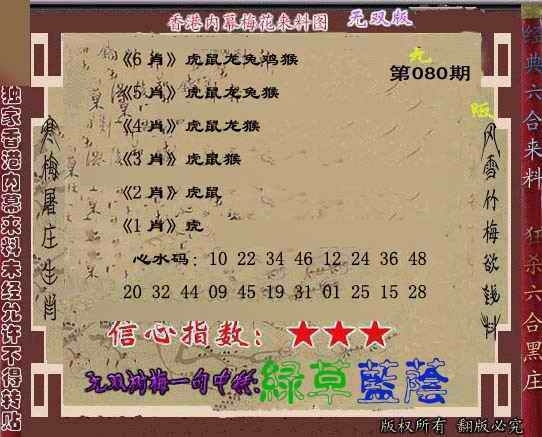 香港内幕梅花来料图 无双版
第080期
《6 肖》虎鼠龙兔鸡猴
《5 肖》虎鼠龙兔猴
《4 肖》虎鼠龙猴
《3 肖》虎鼠猴
《2 肖》虎鼠
《1 肖》虎
心水码：10 22 34 46 12 24 36 48
20 32 44 09 45 19 31 01 25 15 28
信心指数：★★★
绿草蓝荫
独家香港内幕来料未经允许不得转贴
寒梅屠庄生肖
风雪竹梅欲钱料
经典六合来料
狂杀六合黑庄
版权所有 翻版必究